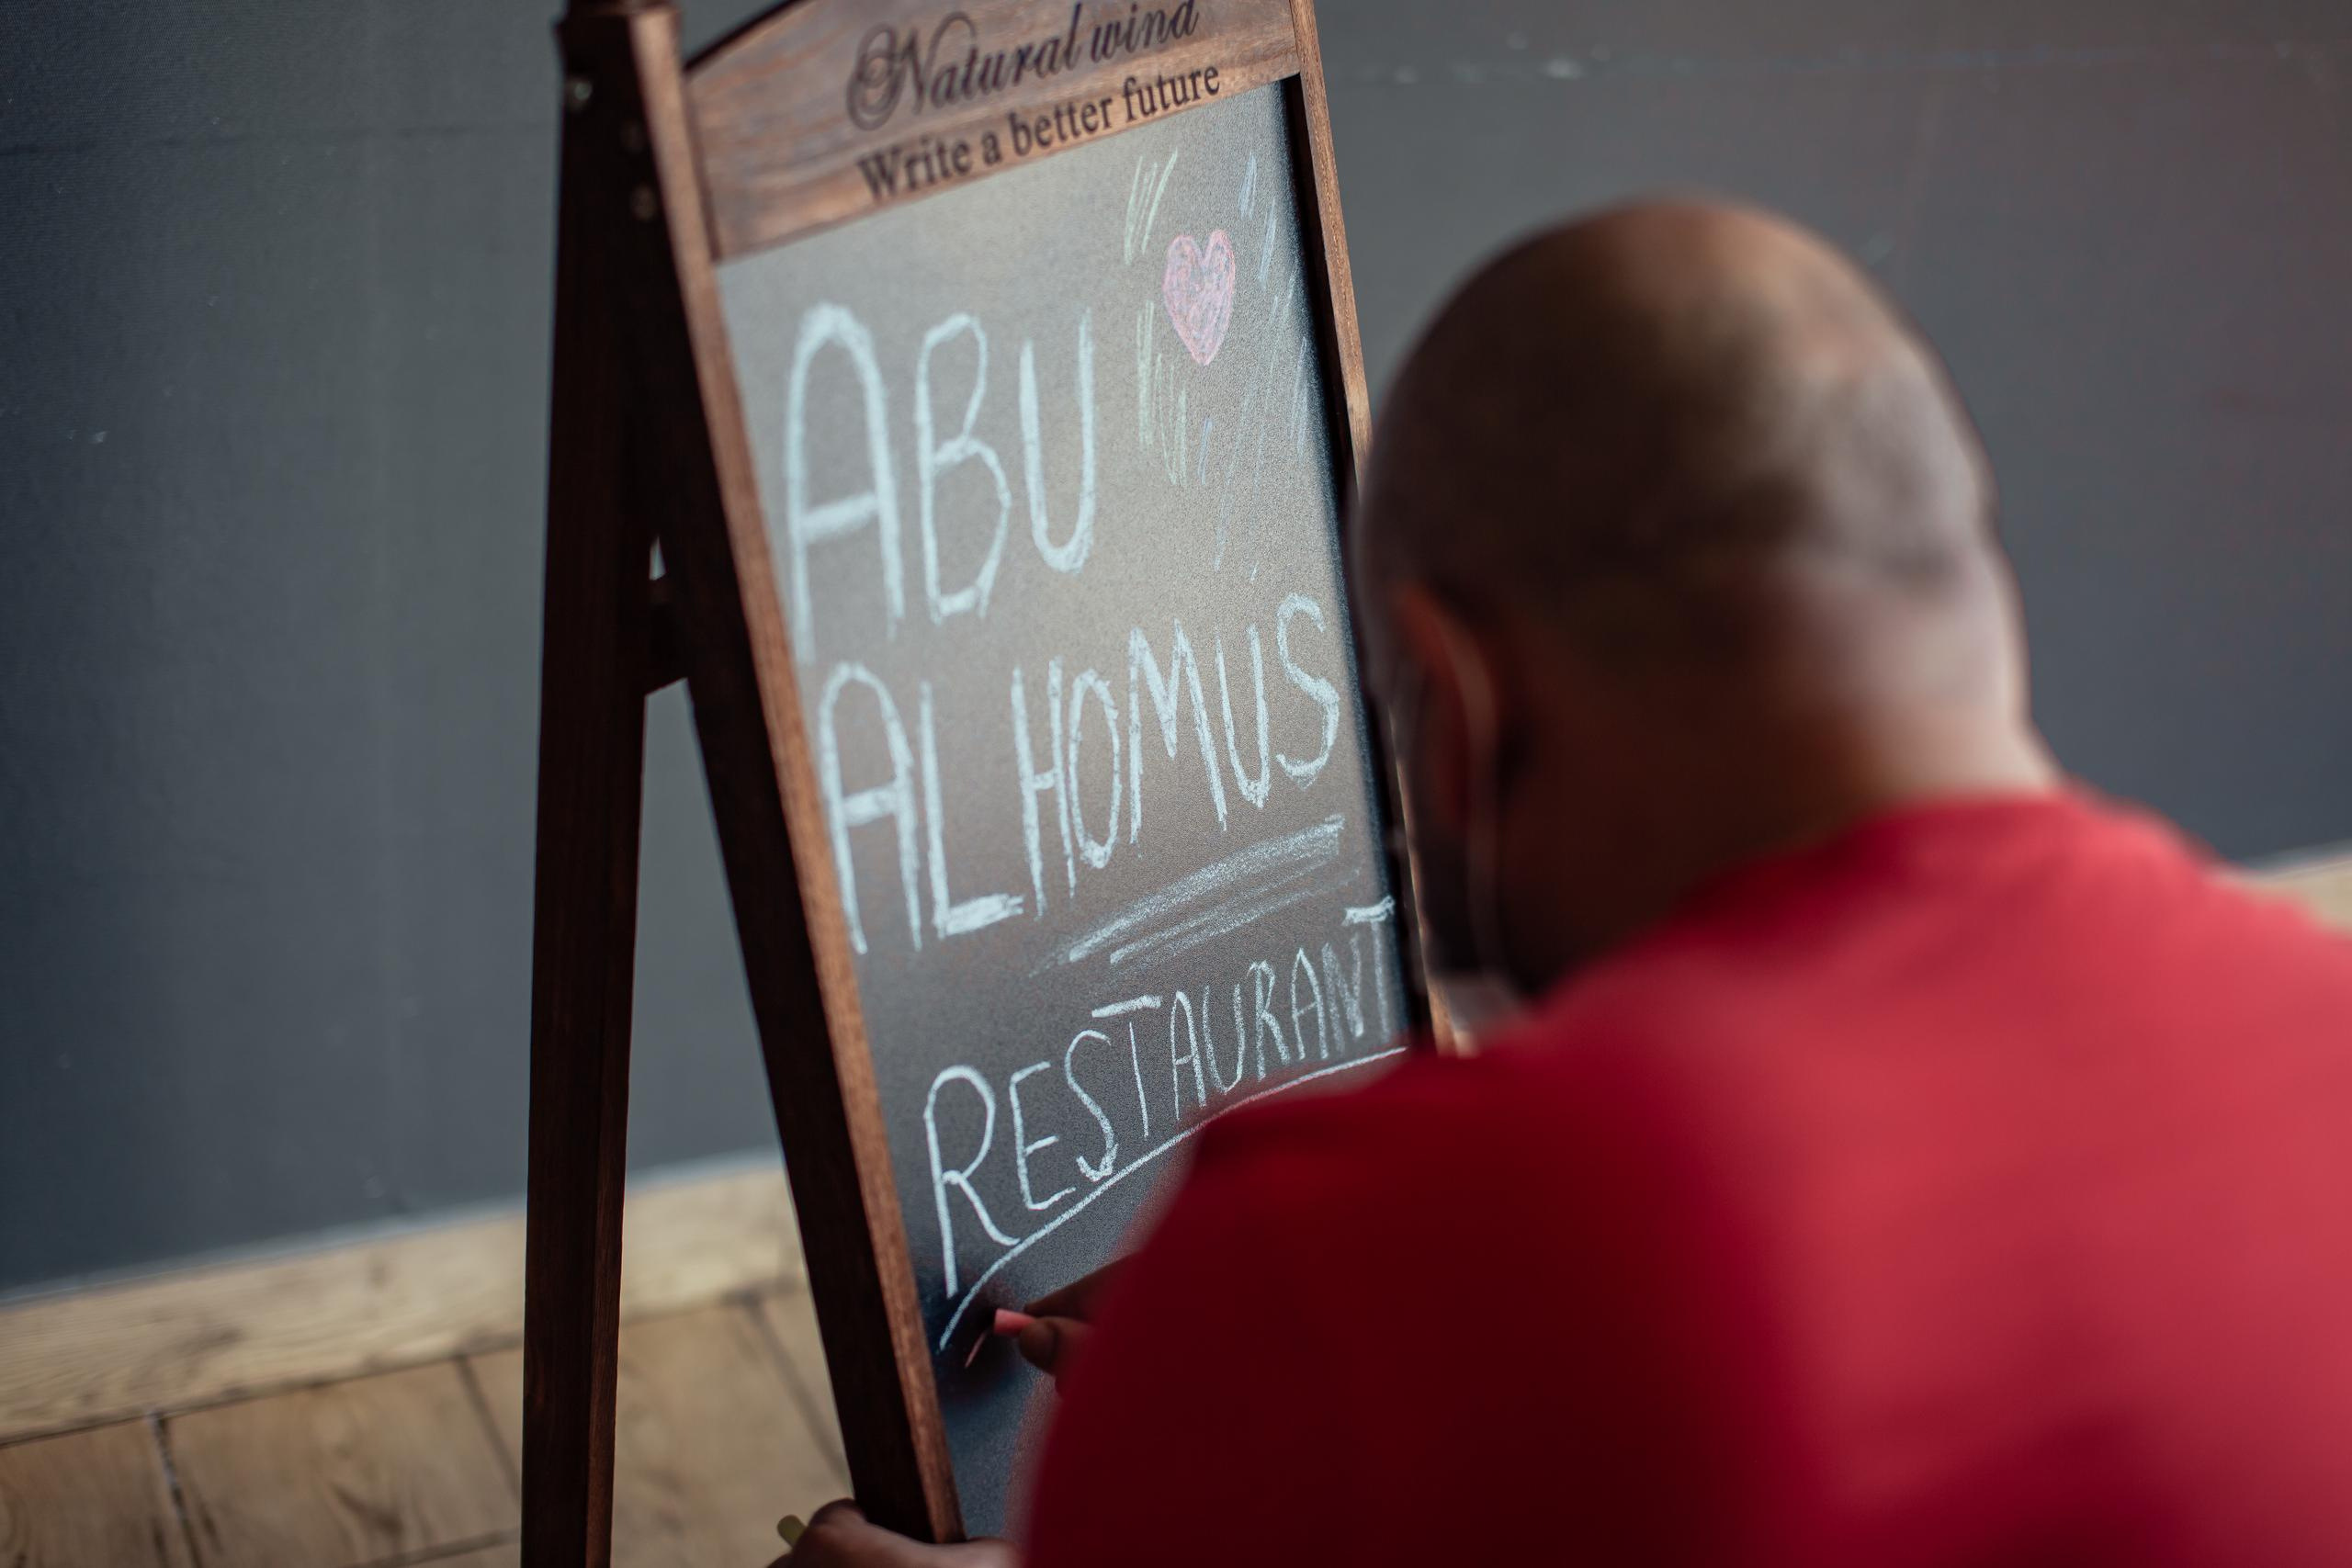 Natural wind
Write a better future
ABU
AL HOMUS
RESTAURANT